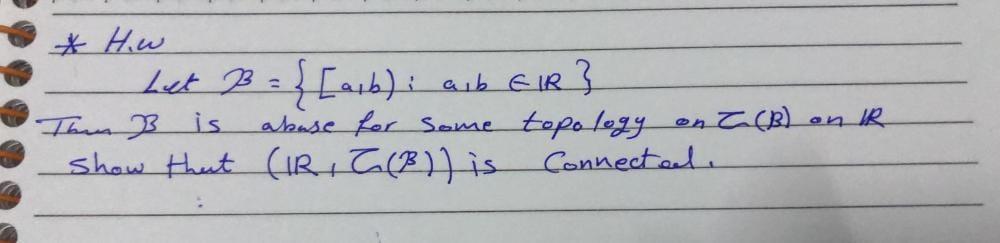 * H.w
Let B = { [a,b) : a,b ∈ IR }
Then B is abase for some topology on τ(B) on IR
show that (IR, τ(B)) is Connected.